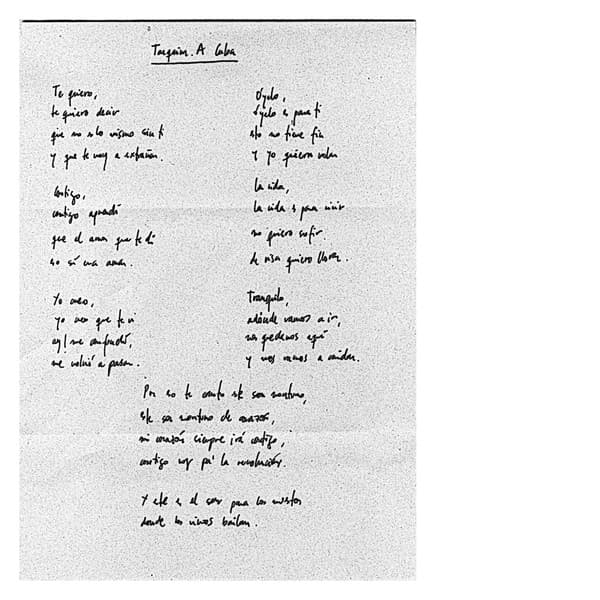 A Cuba
Te quiero,
te quiero decir
que no es lo mismo sin ti
y que te voy a extrañar.
Contigo,
contigo aprendí
que el amor que te di
no sí era amor.
Yo creo,
yo creo que te vi
ay! me confundí,
me volvió a pasar.
óyelo,
óyelo es para ti
esto no tiene fin
y yo quiero volar
La vida,
la vida es para vivir
no quiero sufrir
de risa quiero llorar.
Tranquilo,
adónde vamos a ir,
nos quedamos aquí
y nos vamos a cuidar.
Por eso te canto este son montuno,
este son montuno de corazón,
mi corazón siempre irá contigo,
contigo voy pa' la revolución.
Y este es el son para los muertos
donde los vivos bailan.